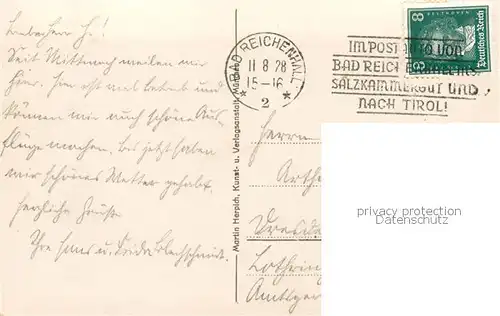 Seit Mittwoch weilen wir
hier.
können wir auch schöne Aus-
flüge machen. Bis jetzt haben
wir schönes Wetter gehabt.
Herzliche Grüße
Ihre Hans u. Frida Blechschmidt.
Martin Herpich, Kunst- u. Verlagsanstalt, München
BAD REICHENHALL
11 8 28
15-16
* 2 *
8 8
BEETHOVEN
Deutsches Reich
IM POSTAUTO VON
BAD REICHENHALL INS
SALZKAMMERGUT UND
NACH TIROL!
Herrn
Arthu
Dresden
Lothring
Amtsger
privacy protection
Datenschutz